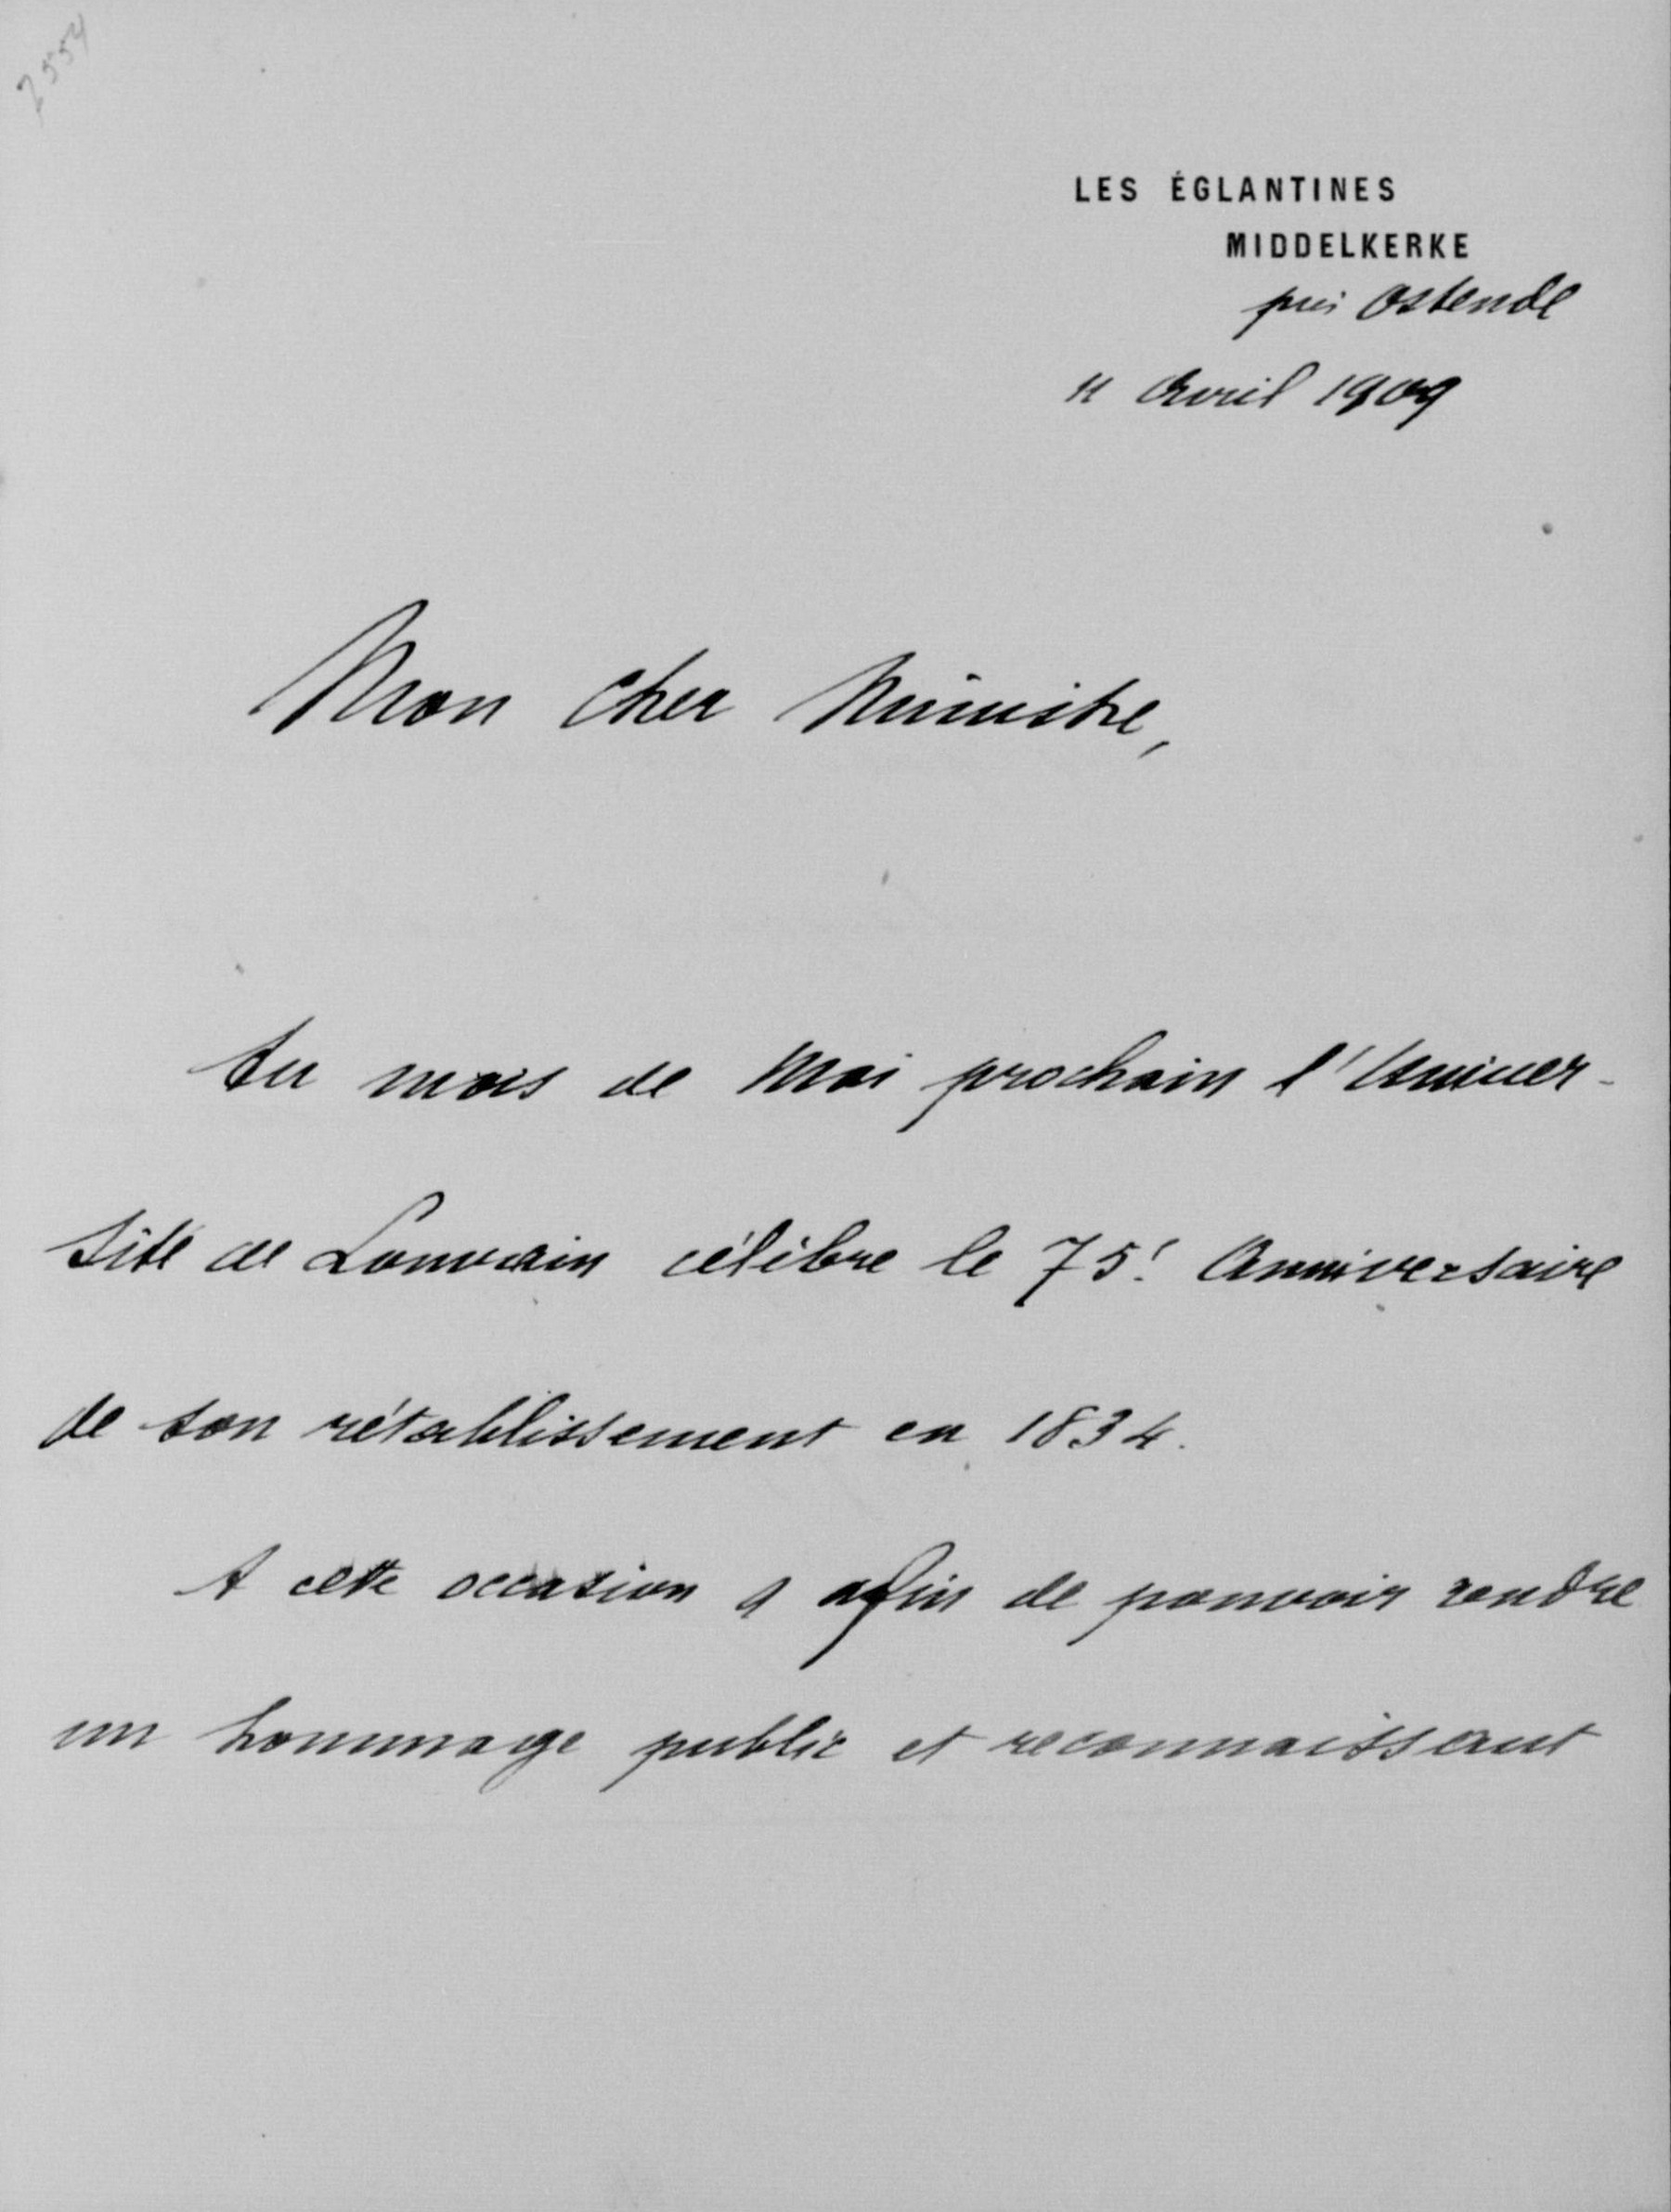 2554
LES ÉGLANTINES
MIDDELKERKE
près Ostende
11 Avril 1909
Mon cher Ministre,
Au mois de Mai prochain l'Univer-
sité de Louvain célèbre le 75e Anniversaire
de son rétablissement en 1834.
A cette occasion & afin de pouvoir rendre
un hommage public et reconnaissant